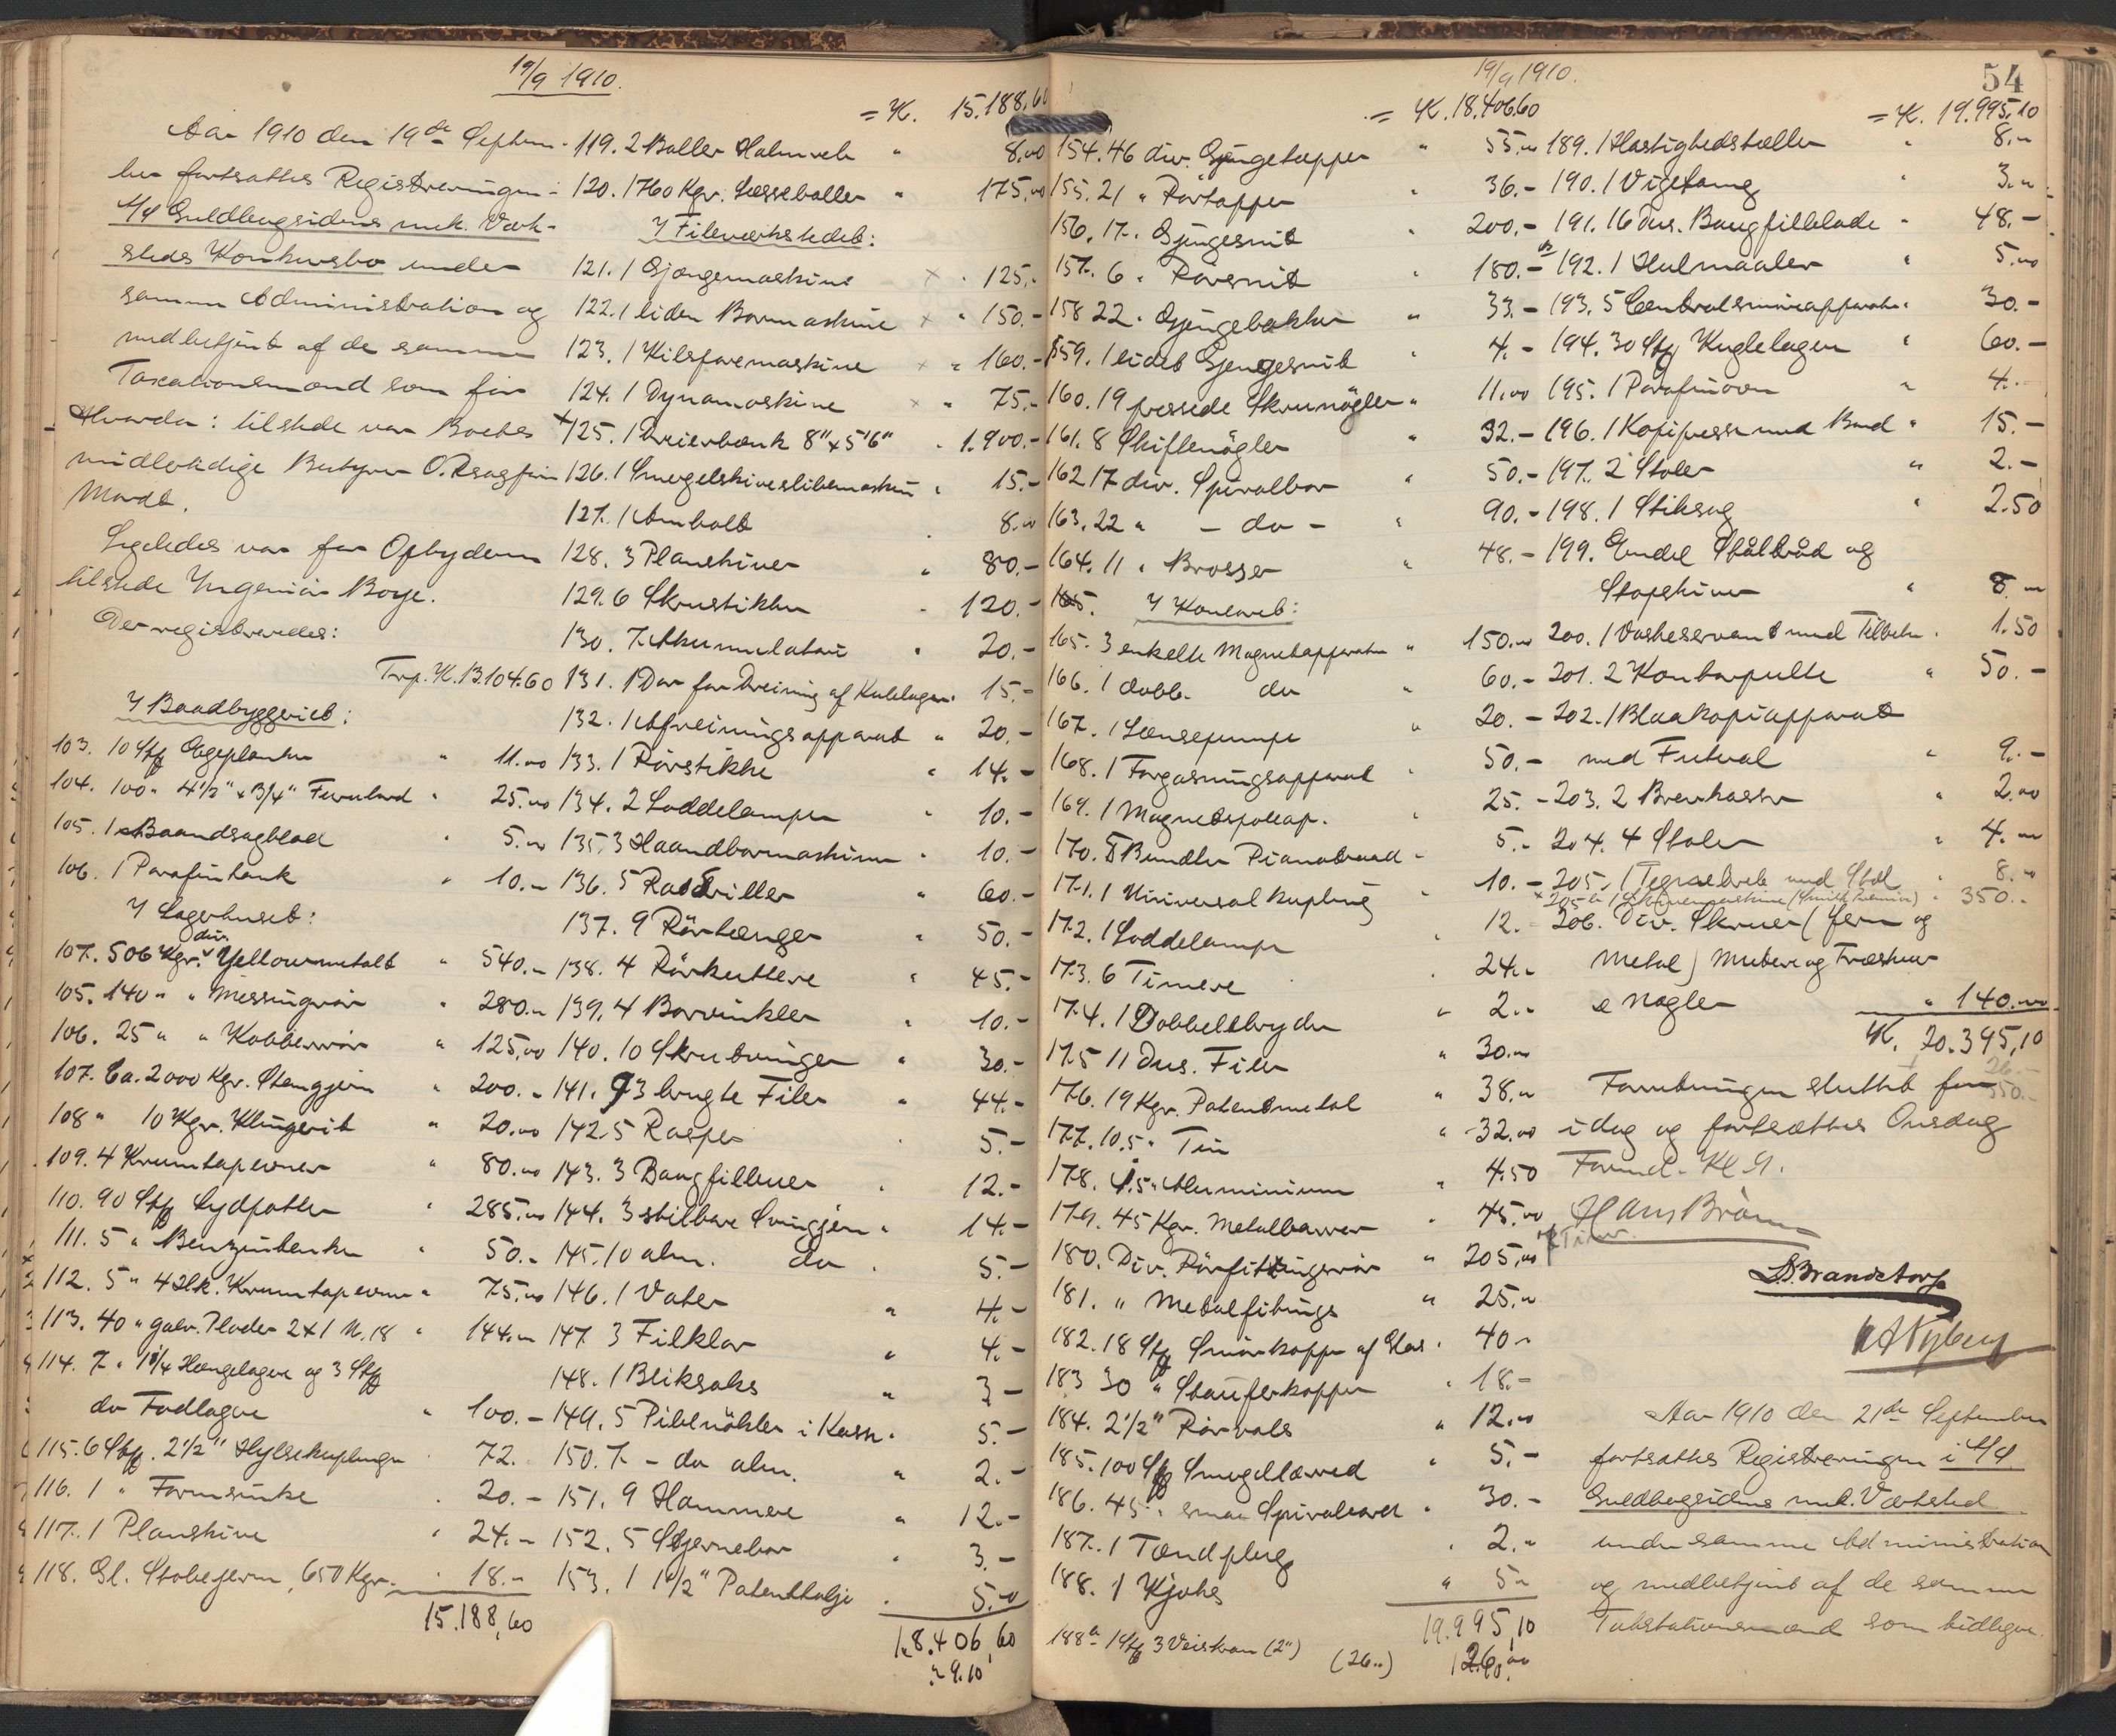 19/9 1910.
Aar 1910 den 19de Septem-
ber fortsattes Registreringen i
A/S Guldbergsidens mek. Værk-
steds Konkursbo under
samme Administration og
medbetjent af de samme
Taxationsmænd som før
Hvorda: tilstede var Boets
midlertidige Bestyrer O.
Mordt.
Ligeledes var for Opbyderen
tilstede Ingeniør Boye.
Der registreredes:
Trp. K. 13.104.60
I Baadbyggeriet:
103. 10 Stk Ægeplanker " 11.00
104. 100 " 4 1/2" x 3/4" Furubord " 25.00
105. 1 Baandsagblad " 5.00
106. 1 Parafintank " 10.-
I Lagerhuset:
107. 506 Kgr. div. Yellowmetalt " 540.-
105. 140 " " Messingrør " 280.-
106. 25 " " Kobberrør " 125.00
107. Ca. 2000 Kgr. Stangjern " 200.-
108 " 10 Kgr. Klingerit " 20.00
109. 4 Krumtapemner " 80.00
110. 90 Stk Lydpotter " 285.00
111. 5 " Benzintanker " 50.-
112. 5 " 4 Krumtapemner " 75.00
113. 40 " galv. Plader 2x1 N. 18 " 144.-
114. 7 " 1 3/4 Hængelagre og 3 Stk
do Fodlagre " 100.-
115. 6 Stk. 2 1/2" Hylsekuplinger 72.
116. 1 " Formsinke . 20.-
117. 1 Planskive " 24.-
118. Gl. Støbejern, 650 Kgr. " 18.-
15.188,60
= K. 15.188,60
119. 2 Baller Halmreb " 8.00
120. 1760 Kgr. Læsseballer " 175.00
I Fileværkstedet:
121. 1 Gjængemaskine x " 125.-
122. 1 liden Bormaskine x " 150.-
123. 1 Kilsporemaskine x " 160.-
124. 1 Dynamaskine x " 75.-
+ 125. 1 Dreierbænk 8" x 5'6" " 1.900.-
126. 1 Smergelskiveslibemaskin " 15.-
127. 1 Ambolt . 8.00
128. 3 Planskiver " 80.-
129. 6 Skrustikker " 120.-
130. 7 Akkumulatorer " 20.-
131. 1 Dor for Dreining af Kulelager " 15.-
132. 1 Afdreiningsapparat " 20.-
133. 1 Rørstikke " 14.-
134. 2 Loddelamper " 10.-
135. 3 Haandbormaskiner " 10.-
136. 5 Ratdriller " 60.-
137. 9 Rørtænger " 50.-
138. 4 Rørkuttere " 45.-
139. 4 Borvinkler " 10.-
140. 10 Skrutvinger " 30.-
141. 93 brugte Filer " 44.-
142. 5 Rasper . 5.-
143. 3 Baugfilbuer " 12.-
144. 3 stilbare Svingjern " 14.-
145. 10 alm. do . 5.-
146. 1 Vater " 4.-
147. 3 Filklor " 4.-
148. 1 Bliksaks " 3-
149. 5 Pibenøkler i Kasse " 5.-
150. 7 - do alm. " 2.-
151. 9 Hammere " 12.-
152. 5 Stjernebor " 3.-
153. 1 1 1/2" Patenttalje . 5.00
18.406,60
" 9.10
54
19/9 1910.
= K. 18.406.60
154. 46 div. Gjengetapper " 55.00
155. 21 " Rørtapper " 36.-
156. 17 " Gjengesnit " 200.-
157. 6 " Rørsnit " 180.-
158 22 " Gjengebakker " 33.-
159. 1 lidet Gjengesnit " 4.-
160. 19 pressede Skrunøgler " 11.00
161. 8 Skiftenøgler " 32.-
162 17 div. Spiralbor " 50.-
163. 22 " - do - " 90.-
164. 11 " Brosser " 48.-
I Kontoret:
165. 3 enkelte Magnetapparater " 150.00
166. 1 dobb. do " 60.-
167. 1 Lænsepumpe " 20.-
168. 1 Forgasningsapparat " 50.-
169. 1 Magnetspoleap. " 25.-
170. 5 Bundter Pianotraad " 5.-
171. 1 Universalkupling " 10.-
172. 1 Loddelampe " 12.
173. 6 Timere . 24.-
174. 1 Dobbeltbryder " 2.-
175 11 Dus. Filer " 30.00
176. 19 Kgr. Patentmetal " 38.-
177. 10.5 " Tin " 32.00
178. 1.5 " Aluminium " 4.50
179. 45 Kgr. Metalbarrer " 45.00
180. Div. Rørfittingsrør " 205.00
181. " Metalfitings " 25.-
182. 18 Stk Smørkopper af Glas " 40-
183 30 " Stauferkopper " 18.-
184. 2 1/2" Rørvals " 12.00
185. 100 Stk Smergellærred " 5.-
186. 45 " smaa Spiralbor " 30.-
187. 1 Tændplug " 2.-
188. 1 Kjoks " 5-
19.995,10
188a 1 Stk 3 Veiskran (2") (26..) 26.00
= K. 19.995,10
189. 1 Hastighedstæller " 8.-
190. 1 Vigetang " 3.-
191. 16 Dus. Baugfilblade " 48.-
192. 1 Hulmaaler " 5.00
193. 5 Centralsmøreapparater " 30.-
194. 30 Stk Kuglelagere " 60.-
195. 1 Parafinovn " 4.-
196. 1 Kopipresse med Bord " 15.-
197. 2 Stoler " 2.-
198. 1 Stiksag " 2.50
199. Endel Ståltråd og
Stopskiver " 8.-
200. 1 Vaskeservant med Tilbehør " 1.50
201. 2 Kontorpulte " 50.-
202. 1 Blaakopiapparat
med Futeral " 9.-
203. 2 Brevkasser " 2.00
204. 4 Stoler " 4.-
205. 1 Tegnebræt med Stol " 8.-
x 205a 1 Skrivemaskine (Smith Premier) " 350..
206. Div. Skruer (Jern og
Metal) Muttere og Træskruer
& Nagler " 140.00
K. 20.395,10
26.-
350.-
Forretningen sluttet for
idag og fortsættes Onsdag
Formd. Kl 9.
Hans Brønn
Brandstorp
A Nyberg
Aar 1910 den 21de September
fortsattes Registreringen i A/S
Guldbergsidens mek. Værksted
under samme Administration
og medbetjent af de samme
Takstationsmænd som tidligere.